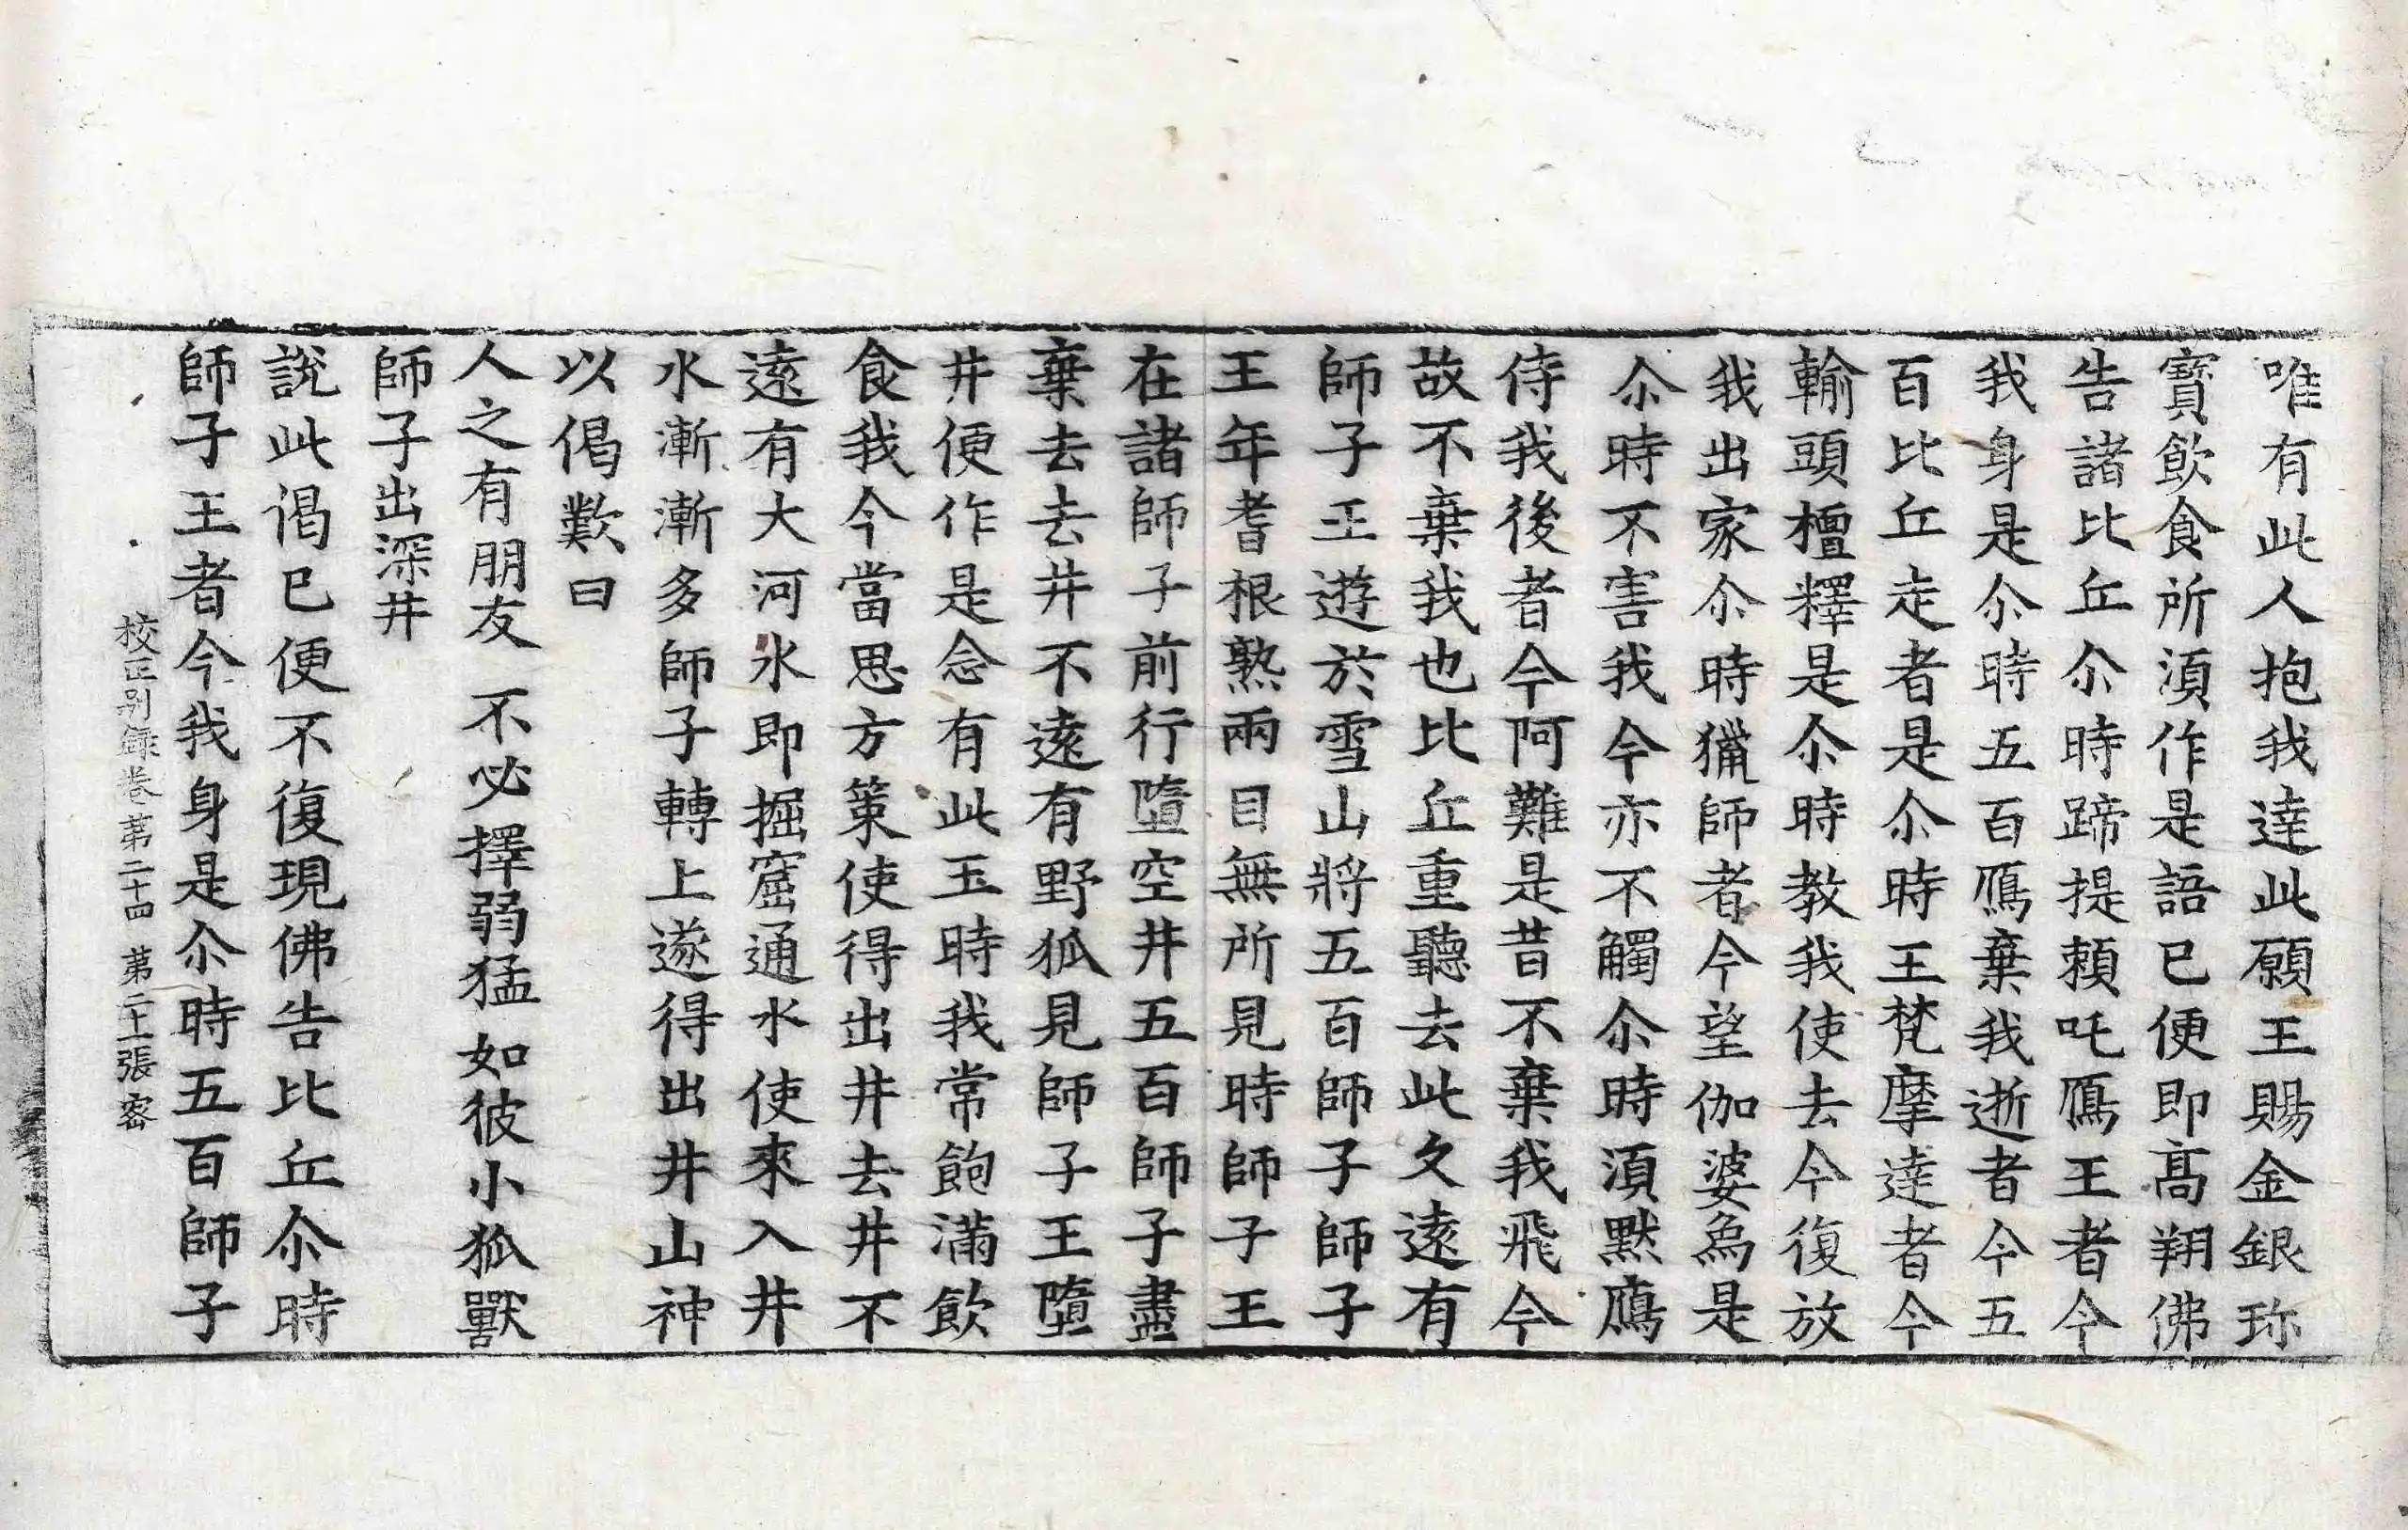 唯有此人抱我達此願王賜金銀珎
寶飲食所湏作是語已便即高翔佛
告諸比丘尒時蹄提賴吒鴈王者今
我身是尒時五百鴈棄我逝者今五
百比丘走者是尒時王梵摩達者今
輸頭檀釋是尒時教我使去今復放
我出家尒時獵師者今望伽婆爲是
尒時不害我今亦不觸尒時湏默鴈
侍我後者今阿難是昔不棄我飛今
故不棄我也比丘重聽去此久遠有
師子王遊於雪山將五百師子師子
王年耆根熟兩目無所見時師子王
在諸師子前行墮空井五百師子盡
棄去去井不遠有野狐見師子王墮
井便作是念有此王時我常飽滿飲
食我今當思方策使得出井去井不
遠有大河水即掘窟通水使來入井
水漸漸多師子轉上遂得出井山神
以偈歎曰
人之有朋友 不必擇弱猛 如彼小狐獸
師子出深井
說此偈已便不復現佛告比丘尒時
師子王者今我身是尒時五百師子
校正别録卷第二十四 第二十一張 宻